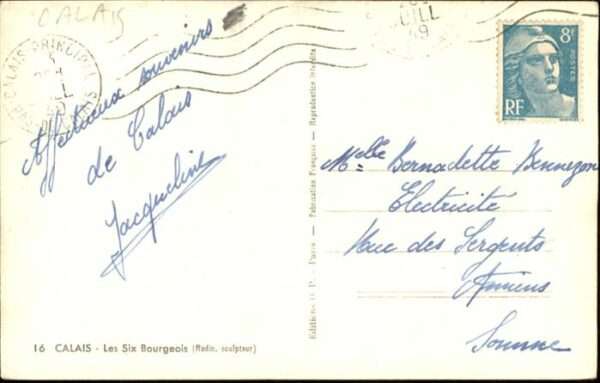 CALAIS
CALAIS PRINCIPAL
JUILL
49
8F
POSTES
RF
Affectueux souvenirs
de Calais
Jacqueline
Melle Bernadette Bennezon
Electricité
Rue des Sergents
Amiens
Somme
Fabrication Française - Reproduction Interdite
16 CALAIS - Les Six Bourgeois (Rodin, sculpteur)